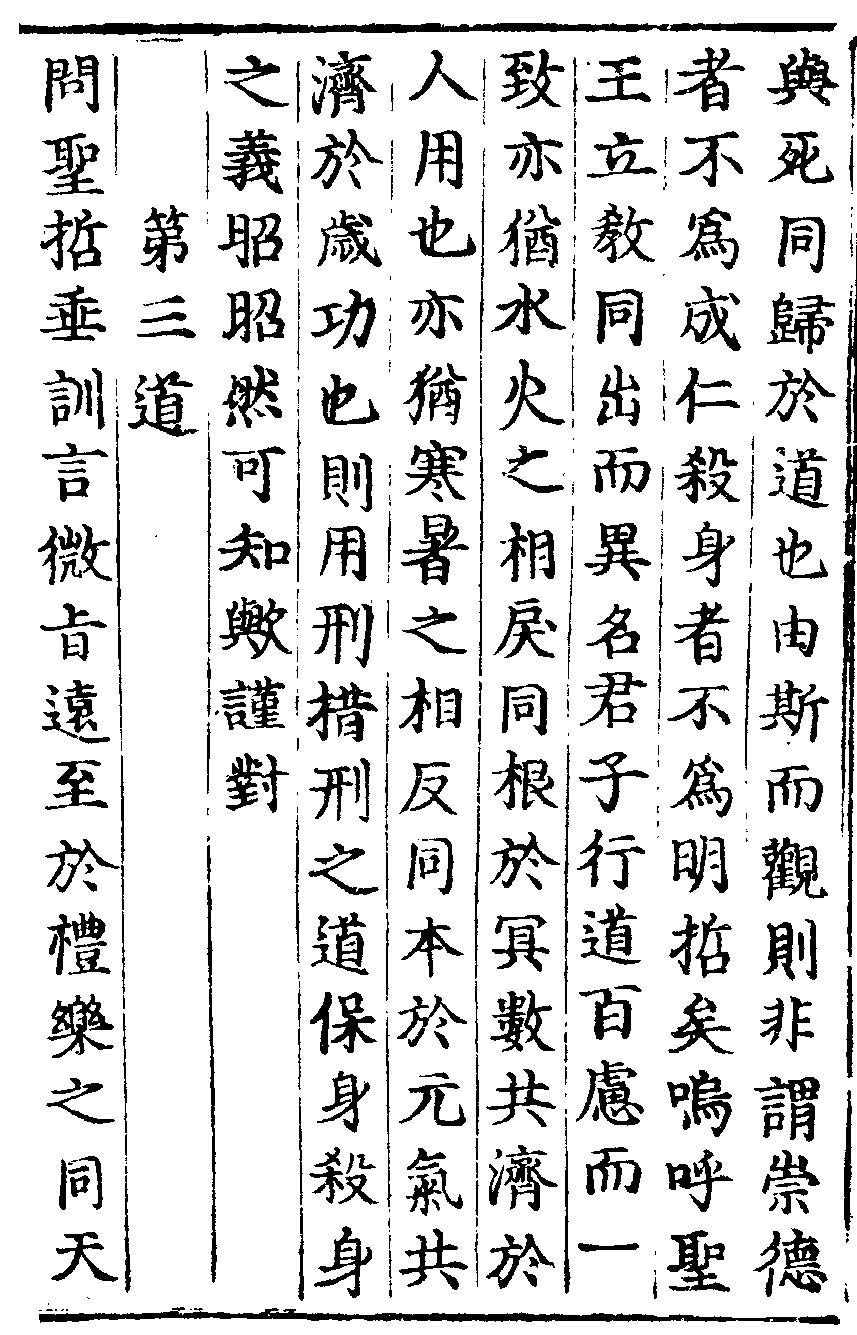 與死同歸於道也由斯而觀則非謂崇德
者不爲成仁殺身者不爲明哲矣嗚呼聖
王立教同出而異名君子行道百慮而一
致亦猶水火之相戾同根於冥數共濟於
人用也亦猶寒暑之相反同本於元氣共
濟於歲功也則用刑措刑之道保身殺身
之義昭昭然可知歟謹對
第三道
問聖哲垂訓言微旨遠至於禮樂之同天